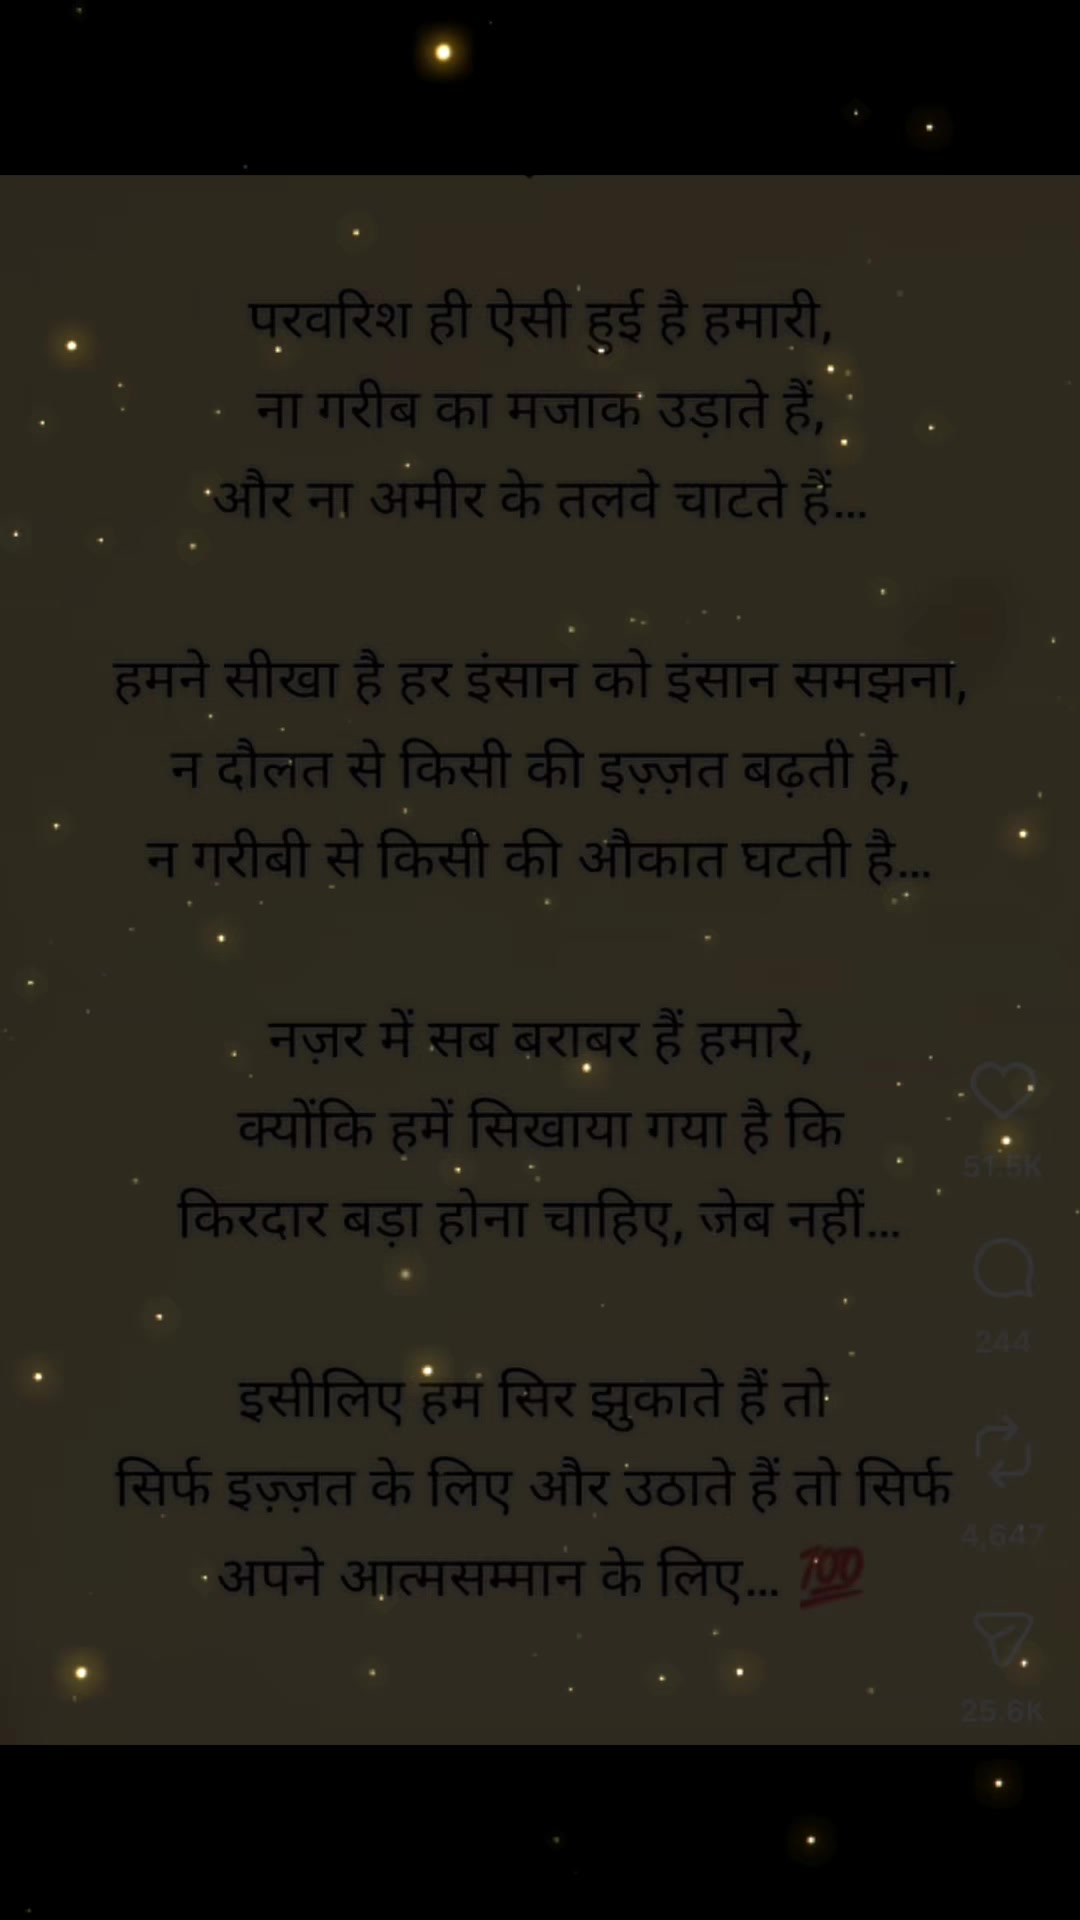 परवरिश ही ऐसी हुई है हमारी,
ना गरीब का मजाक उड़ाते हैं,
और ना अमीर के तलवे चाटते हैं...
हमने सीखा है हर इंसान को इंसान समझना,
न दौलत से किसी की इज़्ज़त बढ़ती है,
न गरीबी से किसी की औकात घटती है...
नज़र में सब बराबर हैं हमारे,
क्योंकि हमें सिखाया गया है कि
किरदार बड़ा होना चाहिए, जेब नहीं...
इसीलिए हम सिर झुकाते हैं तो
सिर्फ इज़्ज़त के लिए और उठाते हैं तो सिर्फ
अपने आत्मसम्मान के लिए... 💯
51.5K
244
4,647
25.6K